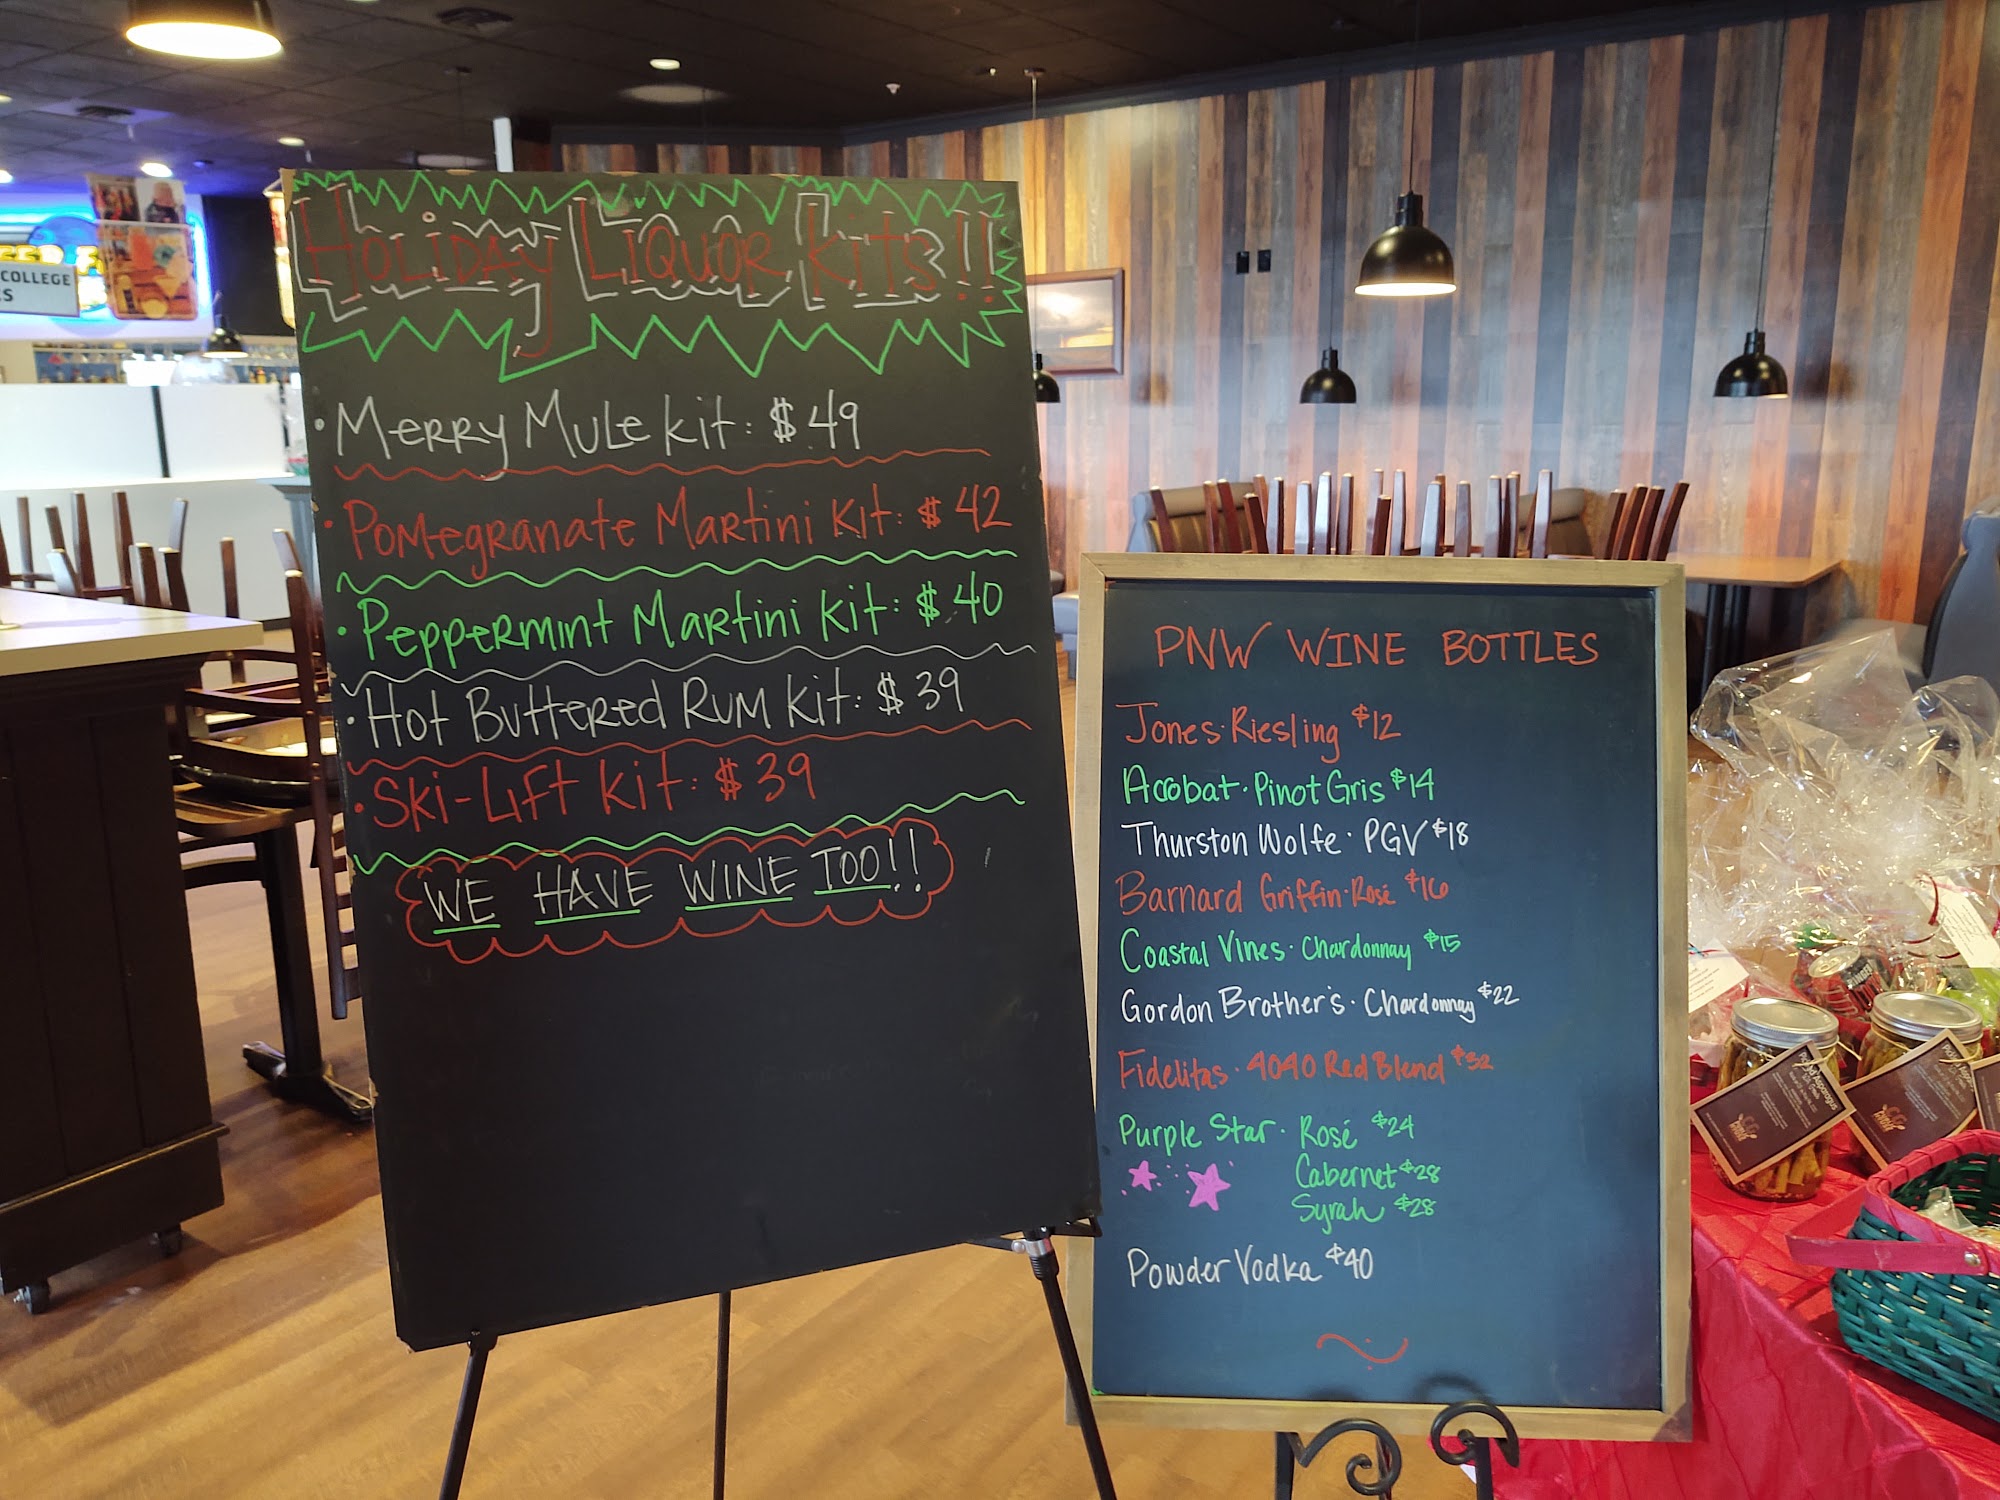 COLLEGE
Holiday Liquor Kits!!
• Merry Mule Kit: $49
• Pomegranate Martini Kit: $42
• Peppermint Martini Kit: $40
• Hot Buttered Rum Kit: $39
• Ski-Lift Kit: $39
WE HAVE WINE TOO!!
PNW WINE BOTTLES
Jones·Riesling $12
Acrobat·Pinot Gris $14
Thurston Wolfe·PGV $18
Barnard Griffin·Rosé $16
Coastal Vines·Chardonnay $15
Gordon Brother's·Chardonnay $22
Fidelitas·4040 Red Blend $32
Purple Star·Rosé $24
Cabernet $28
Syrah $28
Powder Vodka $40